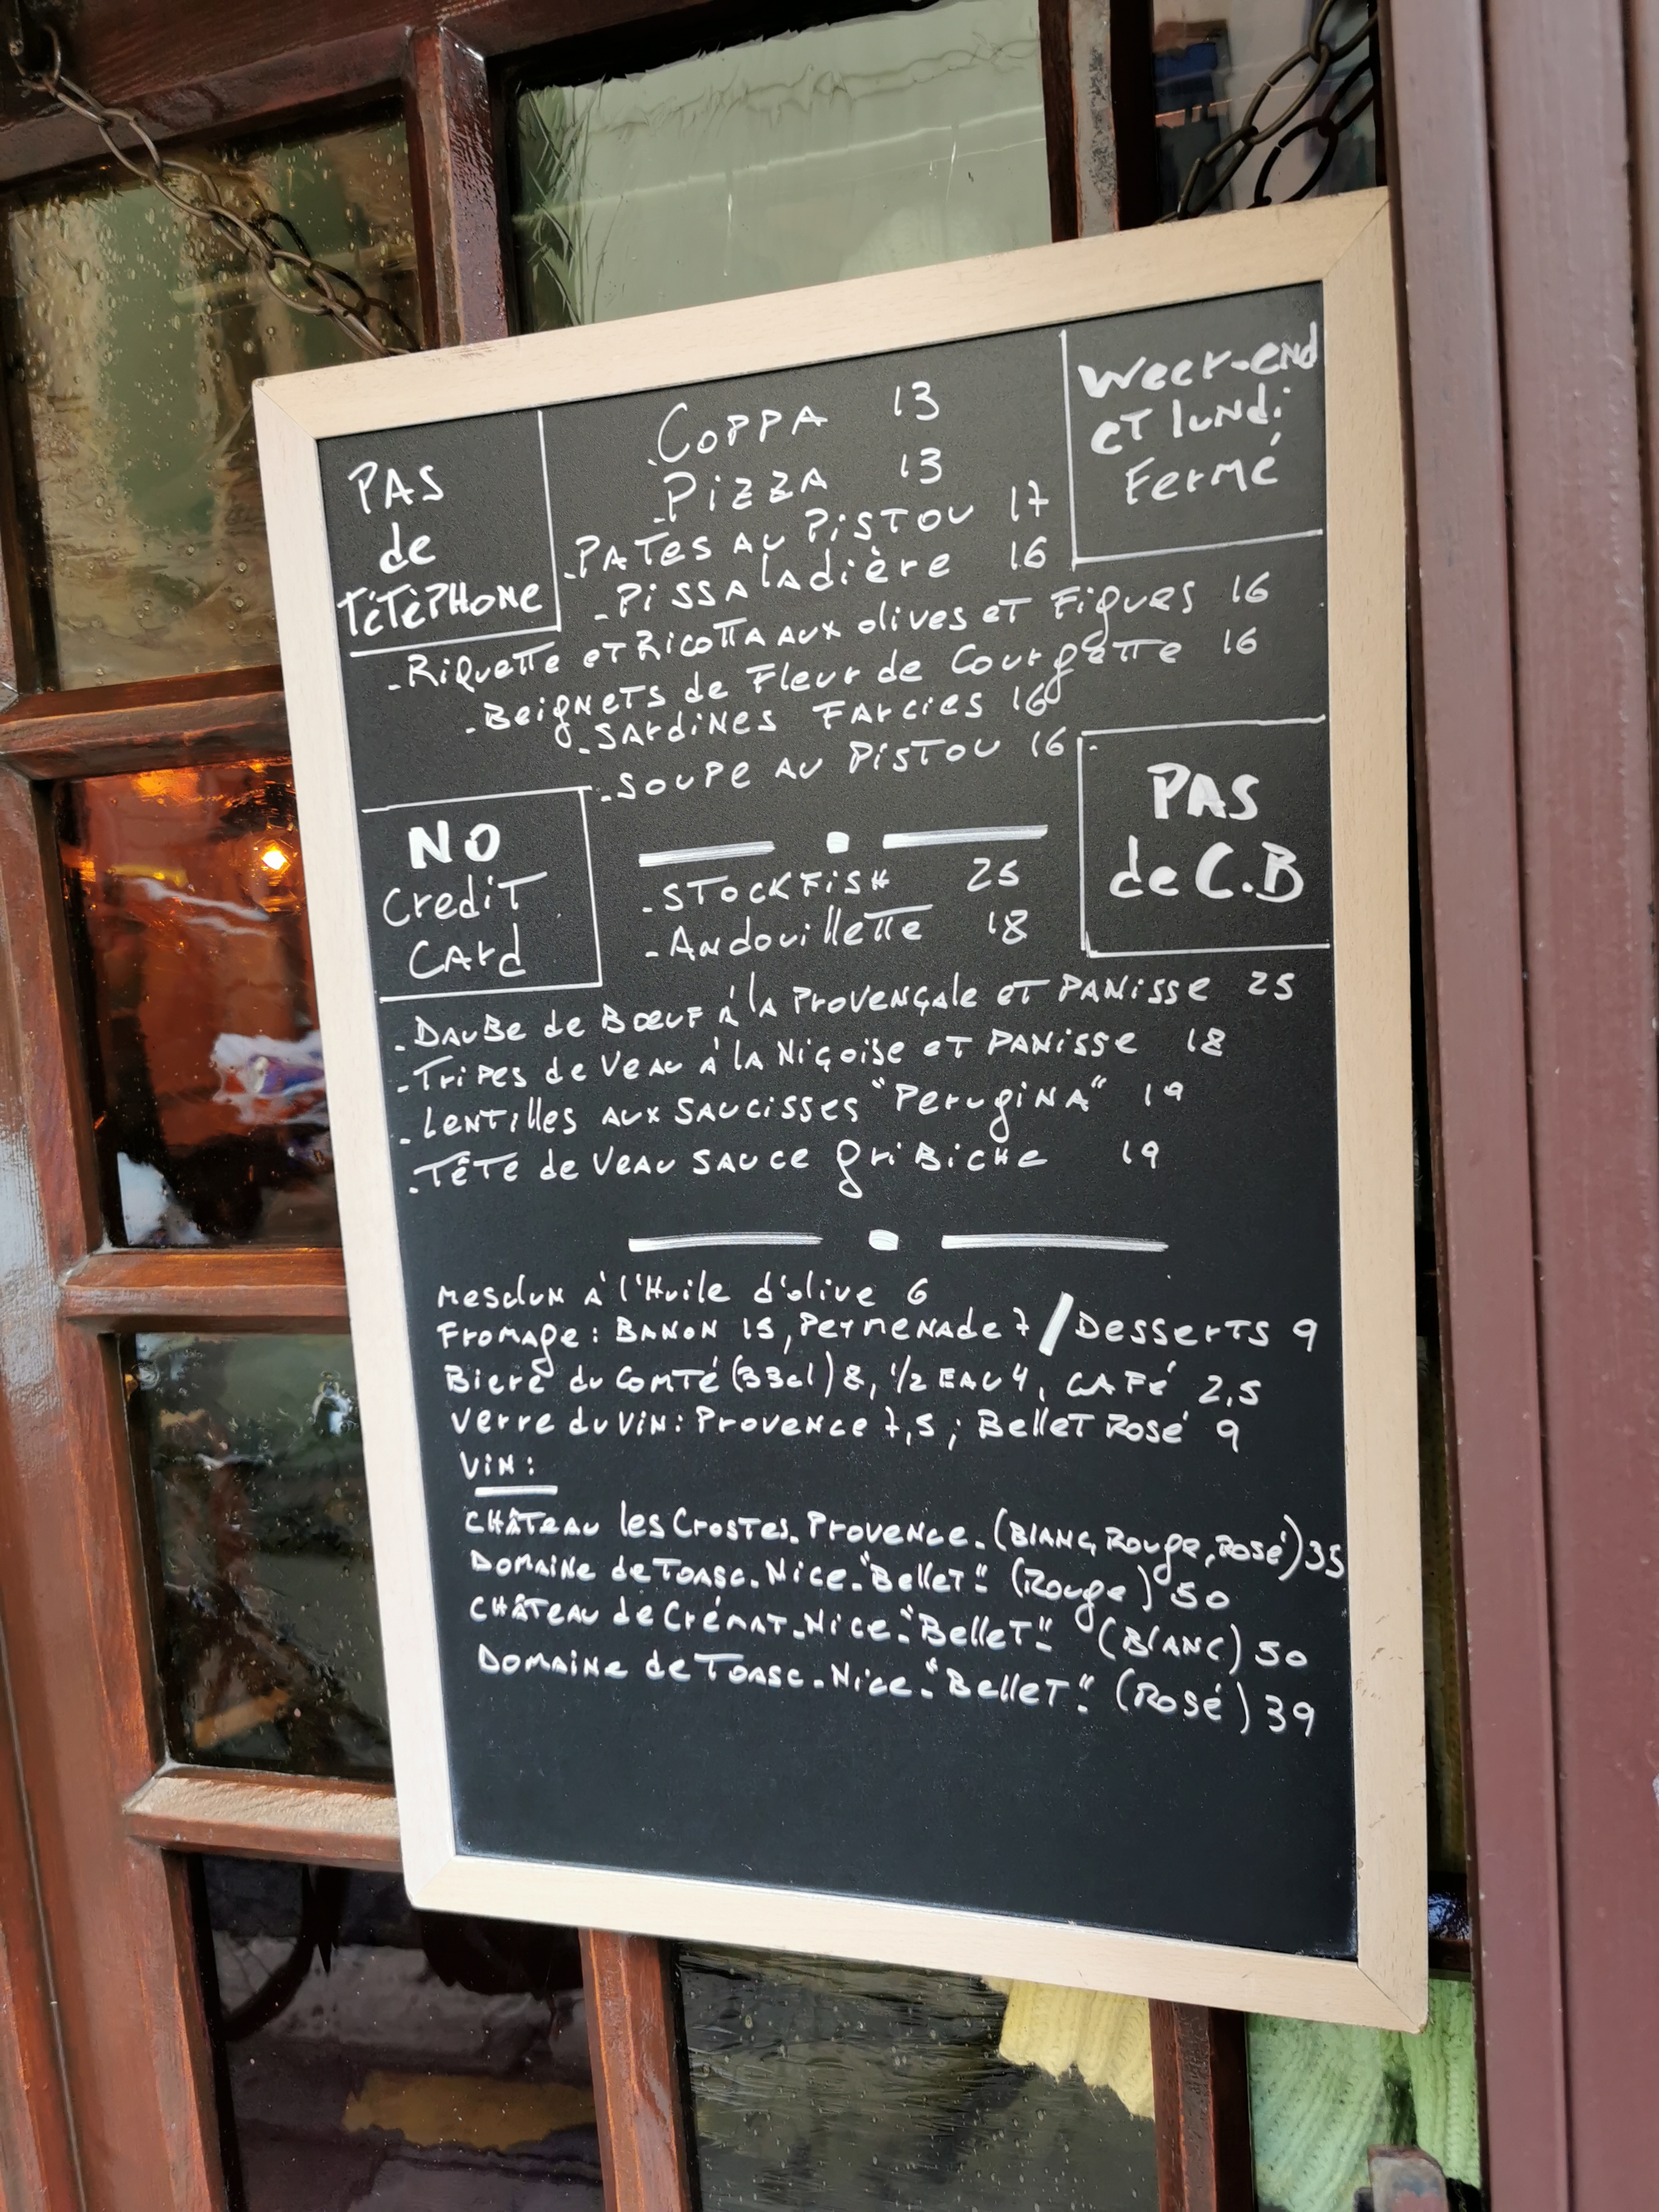 PAS
de
TÉTÈPHONE
Week-end
et lundi
Fermé
.COPPA 13
-PiZZA 13
-PATes AU PiSTOU 17
-PiSSAlAdière 16
-RiQueTTe eT RicoTTA AUX olives eT Figues 16
-BeigNeTS de Fleur de CourgeTTe 16
-SArdiNes FArcies 16
-SOUPe AU PiSTOU 16
NO
CrediT
CArd
PAS
de C.B
-STOCKFiSH 25
-ANdouilleTTe 18
-DAuBe de BœuF à lA ProveNçAle eT PANisse 25
-Tripes de VeAu à lA Niçoise eT PANisse 18
-LeNTilles AUX SAUCiSSes "PerugiNA" 19
-TêTe de VeAu SAUCe griBiCHe 19
MescluN à l'Huile d'olive 6
FroMAge: BANON 15, PeyMeNAde 7 / DesserTs 9
Biere du CoMTé (33cl) 8, 1/2 EAU 4, CAFé 2,5
Verre du ViN: ProveNce 7,5 ; BelleT Rosé 9
ViN:
CHâTeAu les CrosTes. ProveNce. (BlANC, Rouge, Rosé) 35
DoMAiNe de ToAsc. Nice. "BelleT". (Rouge) 50
CHâTeAu de CréMAT. Nice. "BelleT". (BlANC) 50
DoMAiNe de ToAsc. Nice. "BelleT". (Rosé) 39